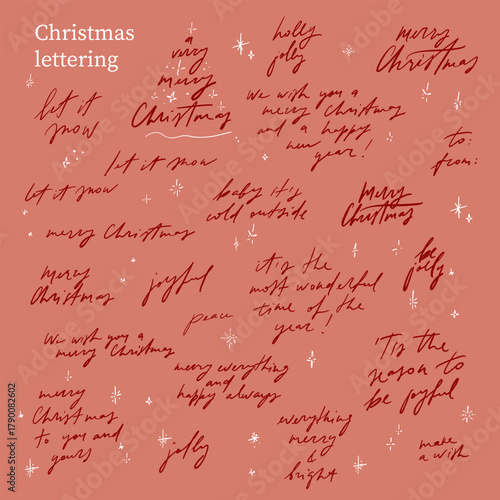 Christmas
lettering
a
very
merry
Christmas
holly
jolly
merry
Christmas
let it
snow
We wish you a
merry Christmas
and a happy
new
year!
to:
from:
let it snow
let it snow
baby it's
cold outside
Merry
Christmas
merry Christmas
be
jolly
merry
Christmas
joyful
it's the
most wonderful
time of the
year!
peace
We wish you a
merry Christmas
merry everything
and
happy always
'Tis the
season to
be joyful
merry
Christmas
to you and
yours
jolly
everything
merry
&
bright
make
a wish
Adobe Stock | #1790082602